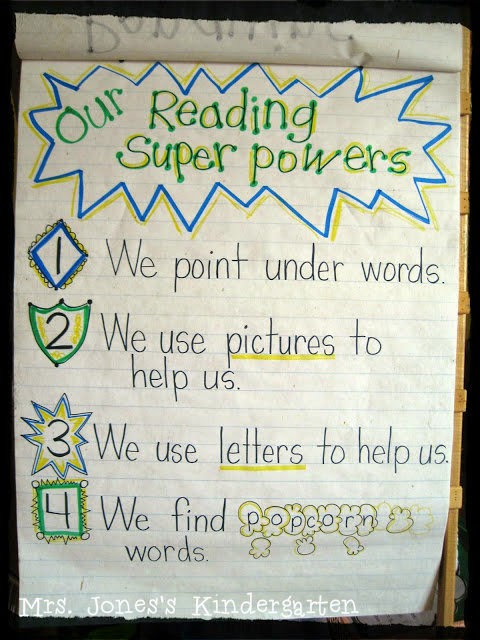 Our Reading
Super powers
1 We point under words.
2 We use pictures to
help us.
3 We use letters to help us.
4 We find popcorn
words.
Mrs. Jones's Kindergarten